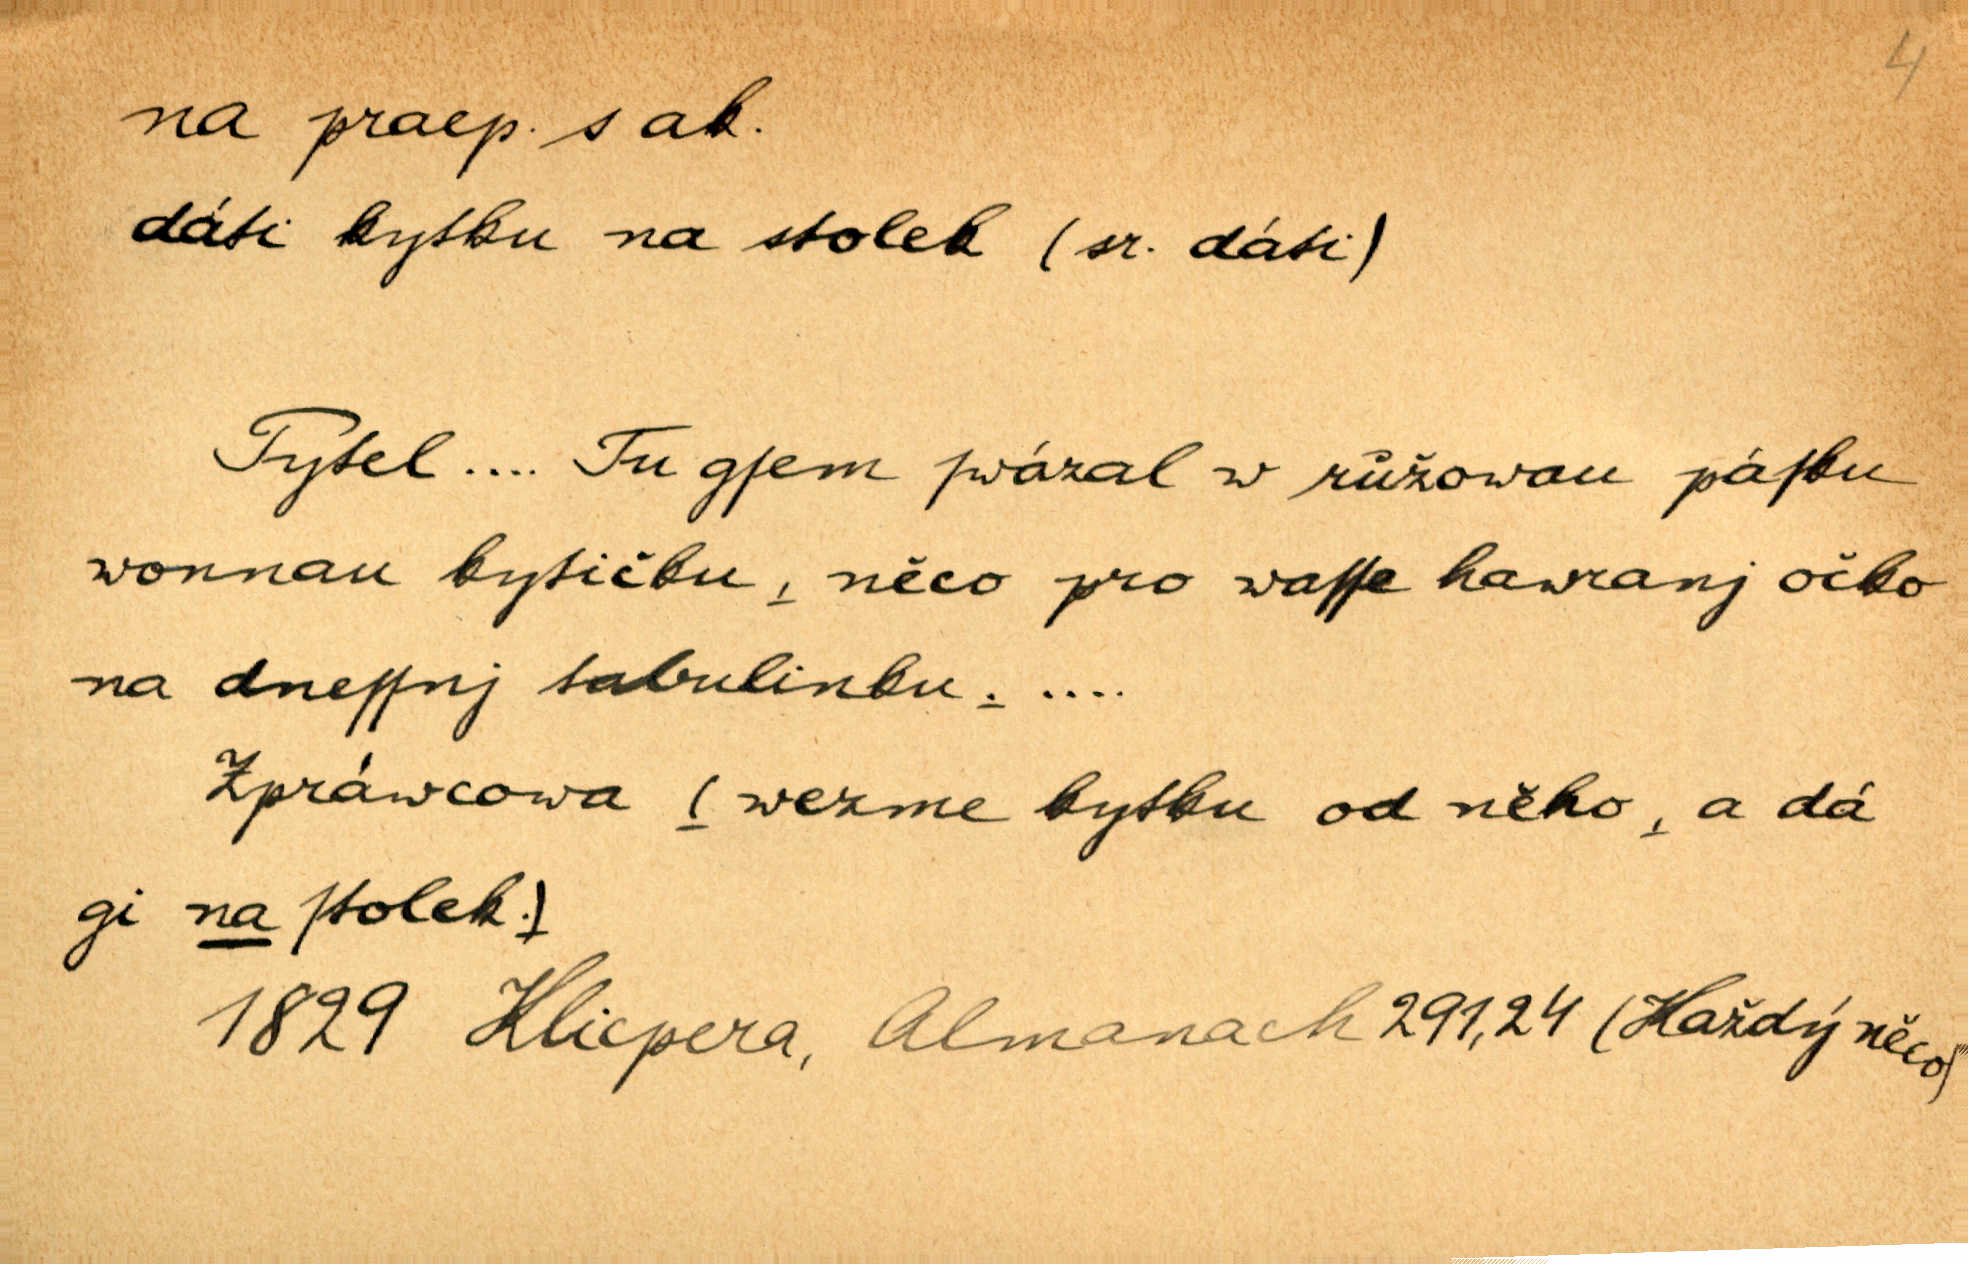 4
na praep. s ak.
dáti kytku na stolek (sr. dáti)
Pytel .... Tu gſem ſwázal w růžowau páſku
wonnau kytičku, něco pro waſſe hawranj očko
na dneſſnj tabulinku. ....
Zpráwcowa (wezme kytku od něho, a dá
gi na ſtolek.)
1829 Klicpera, Almanach 291,24 (Každý něco)